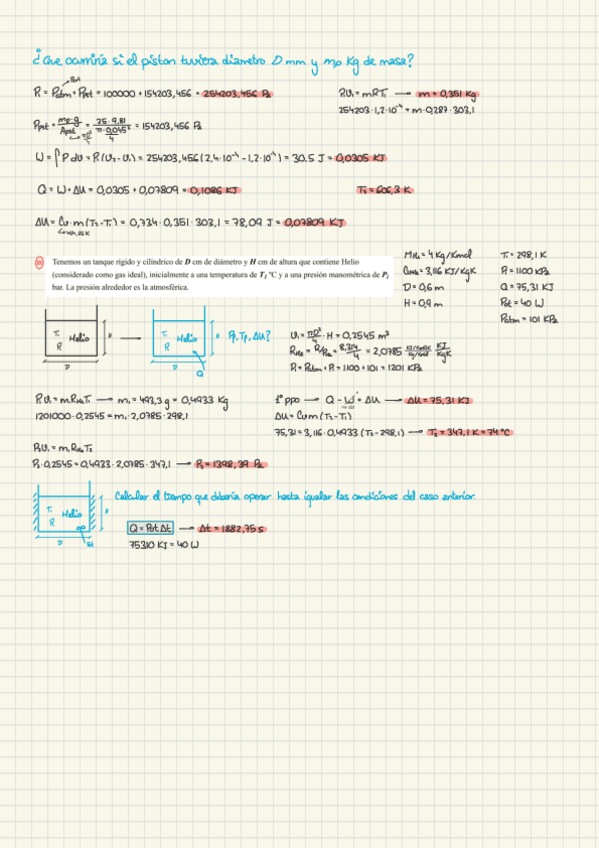 ¿Que ocurriría si el piston tuviera diametro D mm y mp Kg de masa?
P₁ = Patm + Ppist = 100000 + 154203,456 = 254203,456 Pa
P₁V₁ = mRT₁ → m = 0,351 Kg
254203·1,2·10⁻⁴ = m·0,287·303,1
Ppist = mp·g / Apist = 25·9,81 / (π·0,045² / 4) = 154203,456 Pa
W = ∫ P dv = P₁(V₂ - V₁) = 254203,456 (2,4·10⁻⁴ - 1,2·10⁻⁴) = 30.5 J = 0,0305 KJ
Q = W + ΔU = 0,0305 + 0,07809 = 0,1086 KJ
T₂ = 606,3 K
ΔU = Cv·m(T₂ - T₁) = 0,734·0,351·303,1 = 78,09 J = 0,07809 KJ
Tenemos un tanque rígido y cilíndrico de D cm de diámetro y H cm de altura que contiene Helio
(considerado como gas ideal), inicialmente a una temperatura de T₁ ºC y a una presión manométrica de P₁
bar. La presión alrededor es la atmosférica.
MHe = 4 Kg/Kmol
T₁ = 298,1 K
CvHe = 3,116 KJ/KgK
P₁ = 1100 KPa
D = 0,6 m
Q = 75,31 KJ
H = 0,9 m
Pot = 40 W
Patm = 101 KPa
T₁ Helio P₁ H D
T₁ Helio P₁ H D Q
P₂, T₂, ΔU?
V₁ = πD²/4 · H = 0,2545 m³
RHe = R/MHe = 8,314/4 = 2,0785 KJ/KmolK / Kg/Kmol KJ/KgK
P₁ = Patm + P₁ = 1100 + 101 = 1201 KPa
P₁V₁ = m₁RHeT₁ → m₁ = 493,3 g = 0,4933 Kg
1201000·0,2545 = m₁·2,0785·298,1
1º ppo → Q - W = ΔU → ΔU = 75,31 KJ
ΔU = Cv m (T₂ - T₁)
75,31 = 3,116·0,4933 (T₂ - 298,1) → T₂ = 347,1 K = 74 ºC
P₂V₁ = m₁RHeT₂
P₂·0,2545 = 0,4933·2,0785·347,1 → P₂ = 1398,39 Pa
T₁ Helio P₁ H D
Calcular el tiempo que debería operar hasta igualar las condiciones del caso anterior.
Q = Pot Δt → Δt = 1882,75 s
75310 KJ = 40 W